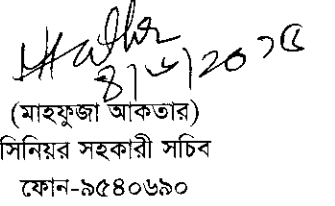 8/6/2015
(মাহফুজা আকতার)
সিনিয়র সহকারী সচিব
ফোন-৯৫৪০৬৯০